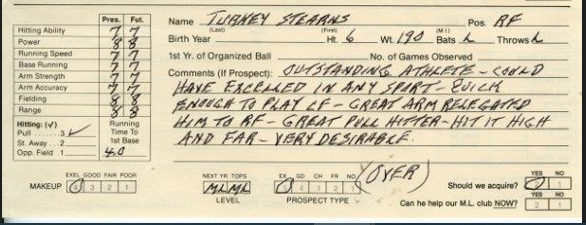 Pres. Fut.
Hitting Ability 7 7
Power 8 8
Running Speed 7 7
Base Running 7 7
Arm Strength 7 7
Arm Accuracy 7 7
Fielding 8 8
Range 8 8
Hitting: (✓)
Pull ........ 3 ✓
St. Away .. 2
Opp. Field . 1
Running Time To 1st Base
4.0
Name TURKEY STEARNS Pos. RF
(Last) (First) (M.I.)
Birth Year Ht. 6 Wt. 190 Bats L Throws L
1st Yr. of Organized Ball No. of Games Observed
Comments (If Prospect): OUTSTANDING ATHLETE - COULD
HAVE EXCELLED IN ANY SPORT - QUICK
ENOUGH TO PLAY CF - GREAT ARM RELEGATED
HIM TO RF - GREAT PULL HITTER - HIT IT HIGH
AND FAR - VERY DESIRABLE.
(OVER)
EXEL GOOD FAIR POOR
MAKEUP 4 3 2 1
NEXT YR. TOPS
ML ML
LEVEL
EX. GD CH FR NO
4 3 2 1
PROSPECT TYPE
YES NO
Should we acquire? 1
YES NO
Can he help our M.L. club NOW? 2 1